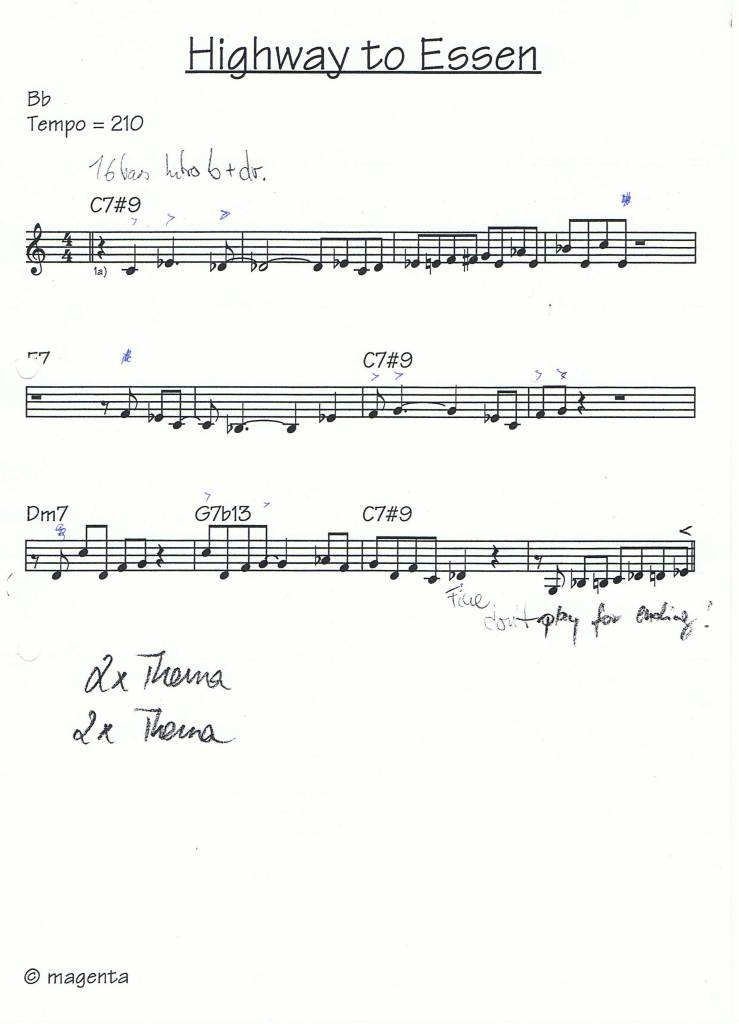 Highway to Essen
Bb
Tempo = 210
16 bars Intro b + dr.
C7#9
4
4
1a)
F7
C7#9
Dm7
G7b13
C7#9
Fine
don't play for ending!
2x Thema
2x Thema
© magenta